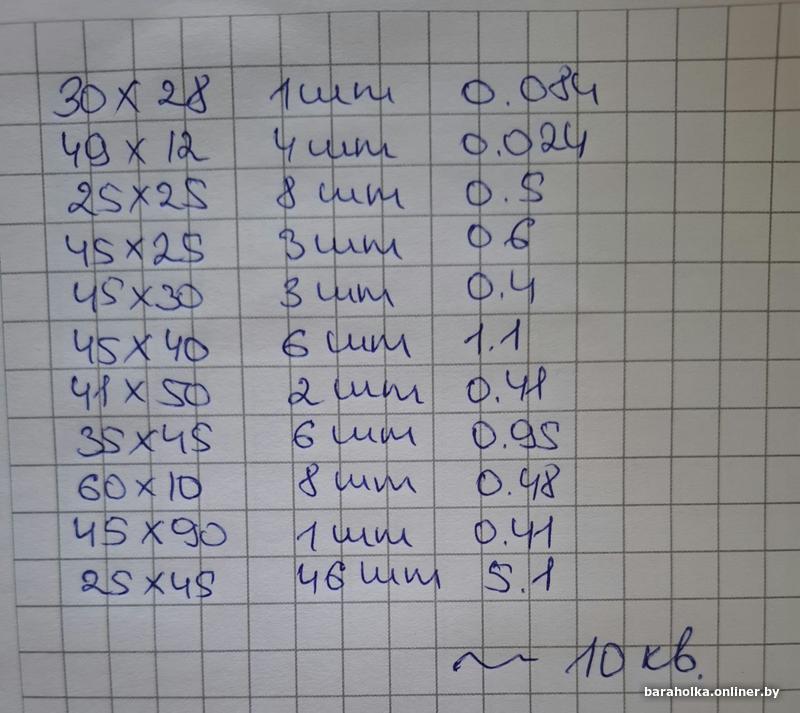 30 x 28 1 шт 0.084
49 x 12 4 шт 0.024
25 x 25 8 шт 0.5
45 x 25 3 шт 0 6
45 x 30 3 шт 0.4
45 x 40 6 шт 1.1
41 x 50 2 шт 0.41
35 x 45 6 шт 0.95
60 x 10 8 шт 0.48
45 x 90 1 шт 0.41
25 x 45 46 шт 5.1
~ 10 кв.
baraholka.onliner.by